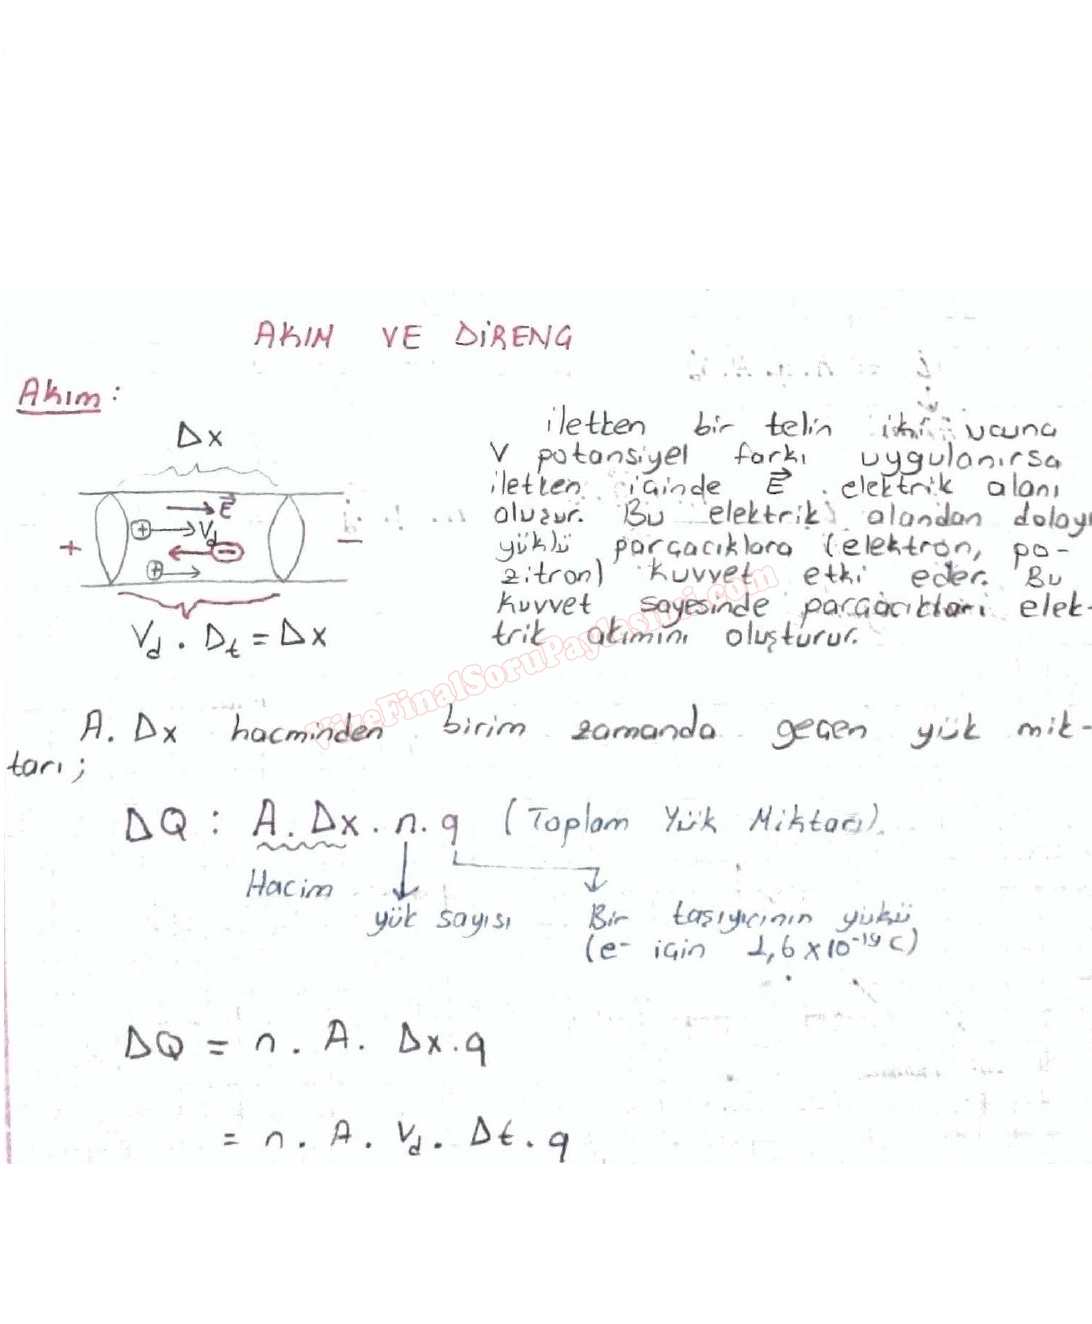 AKIM VE DİRENÇ
Akım:
Δx
iletken bir telin iki ucuna
V potansiyel farkı uygulanırsa
iletken içinde E⃗ elektrik alanı
oluşur. Bu elektrik alandan dolayı
yüklü parçacıklara (elektron, po-
zitron) kuvvet etki eder. Bu
kuvvet sayesinde parçacıkları elek-
trik akımını oluşturur.
E⃗
+ Vd
+ - -
+
Vd . Dt = Δx
VizeFinalSoruPaylasimi.com
A. Δx hacminden birim zamanda geçen yük mik-
tarı;
ΔQ : A. Δx . n. q (Toplam Yük Miktarı).
Hacim
yük sayısı
Bir taşıyıcının yükü
(e- için 1,6 x 10⁻¹⁹ C)
ΔQ = n . A. Δx . q
= n . A. Vd . Δt . q